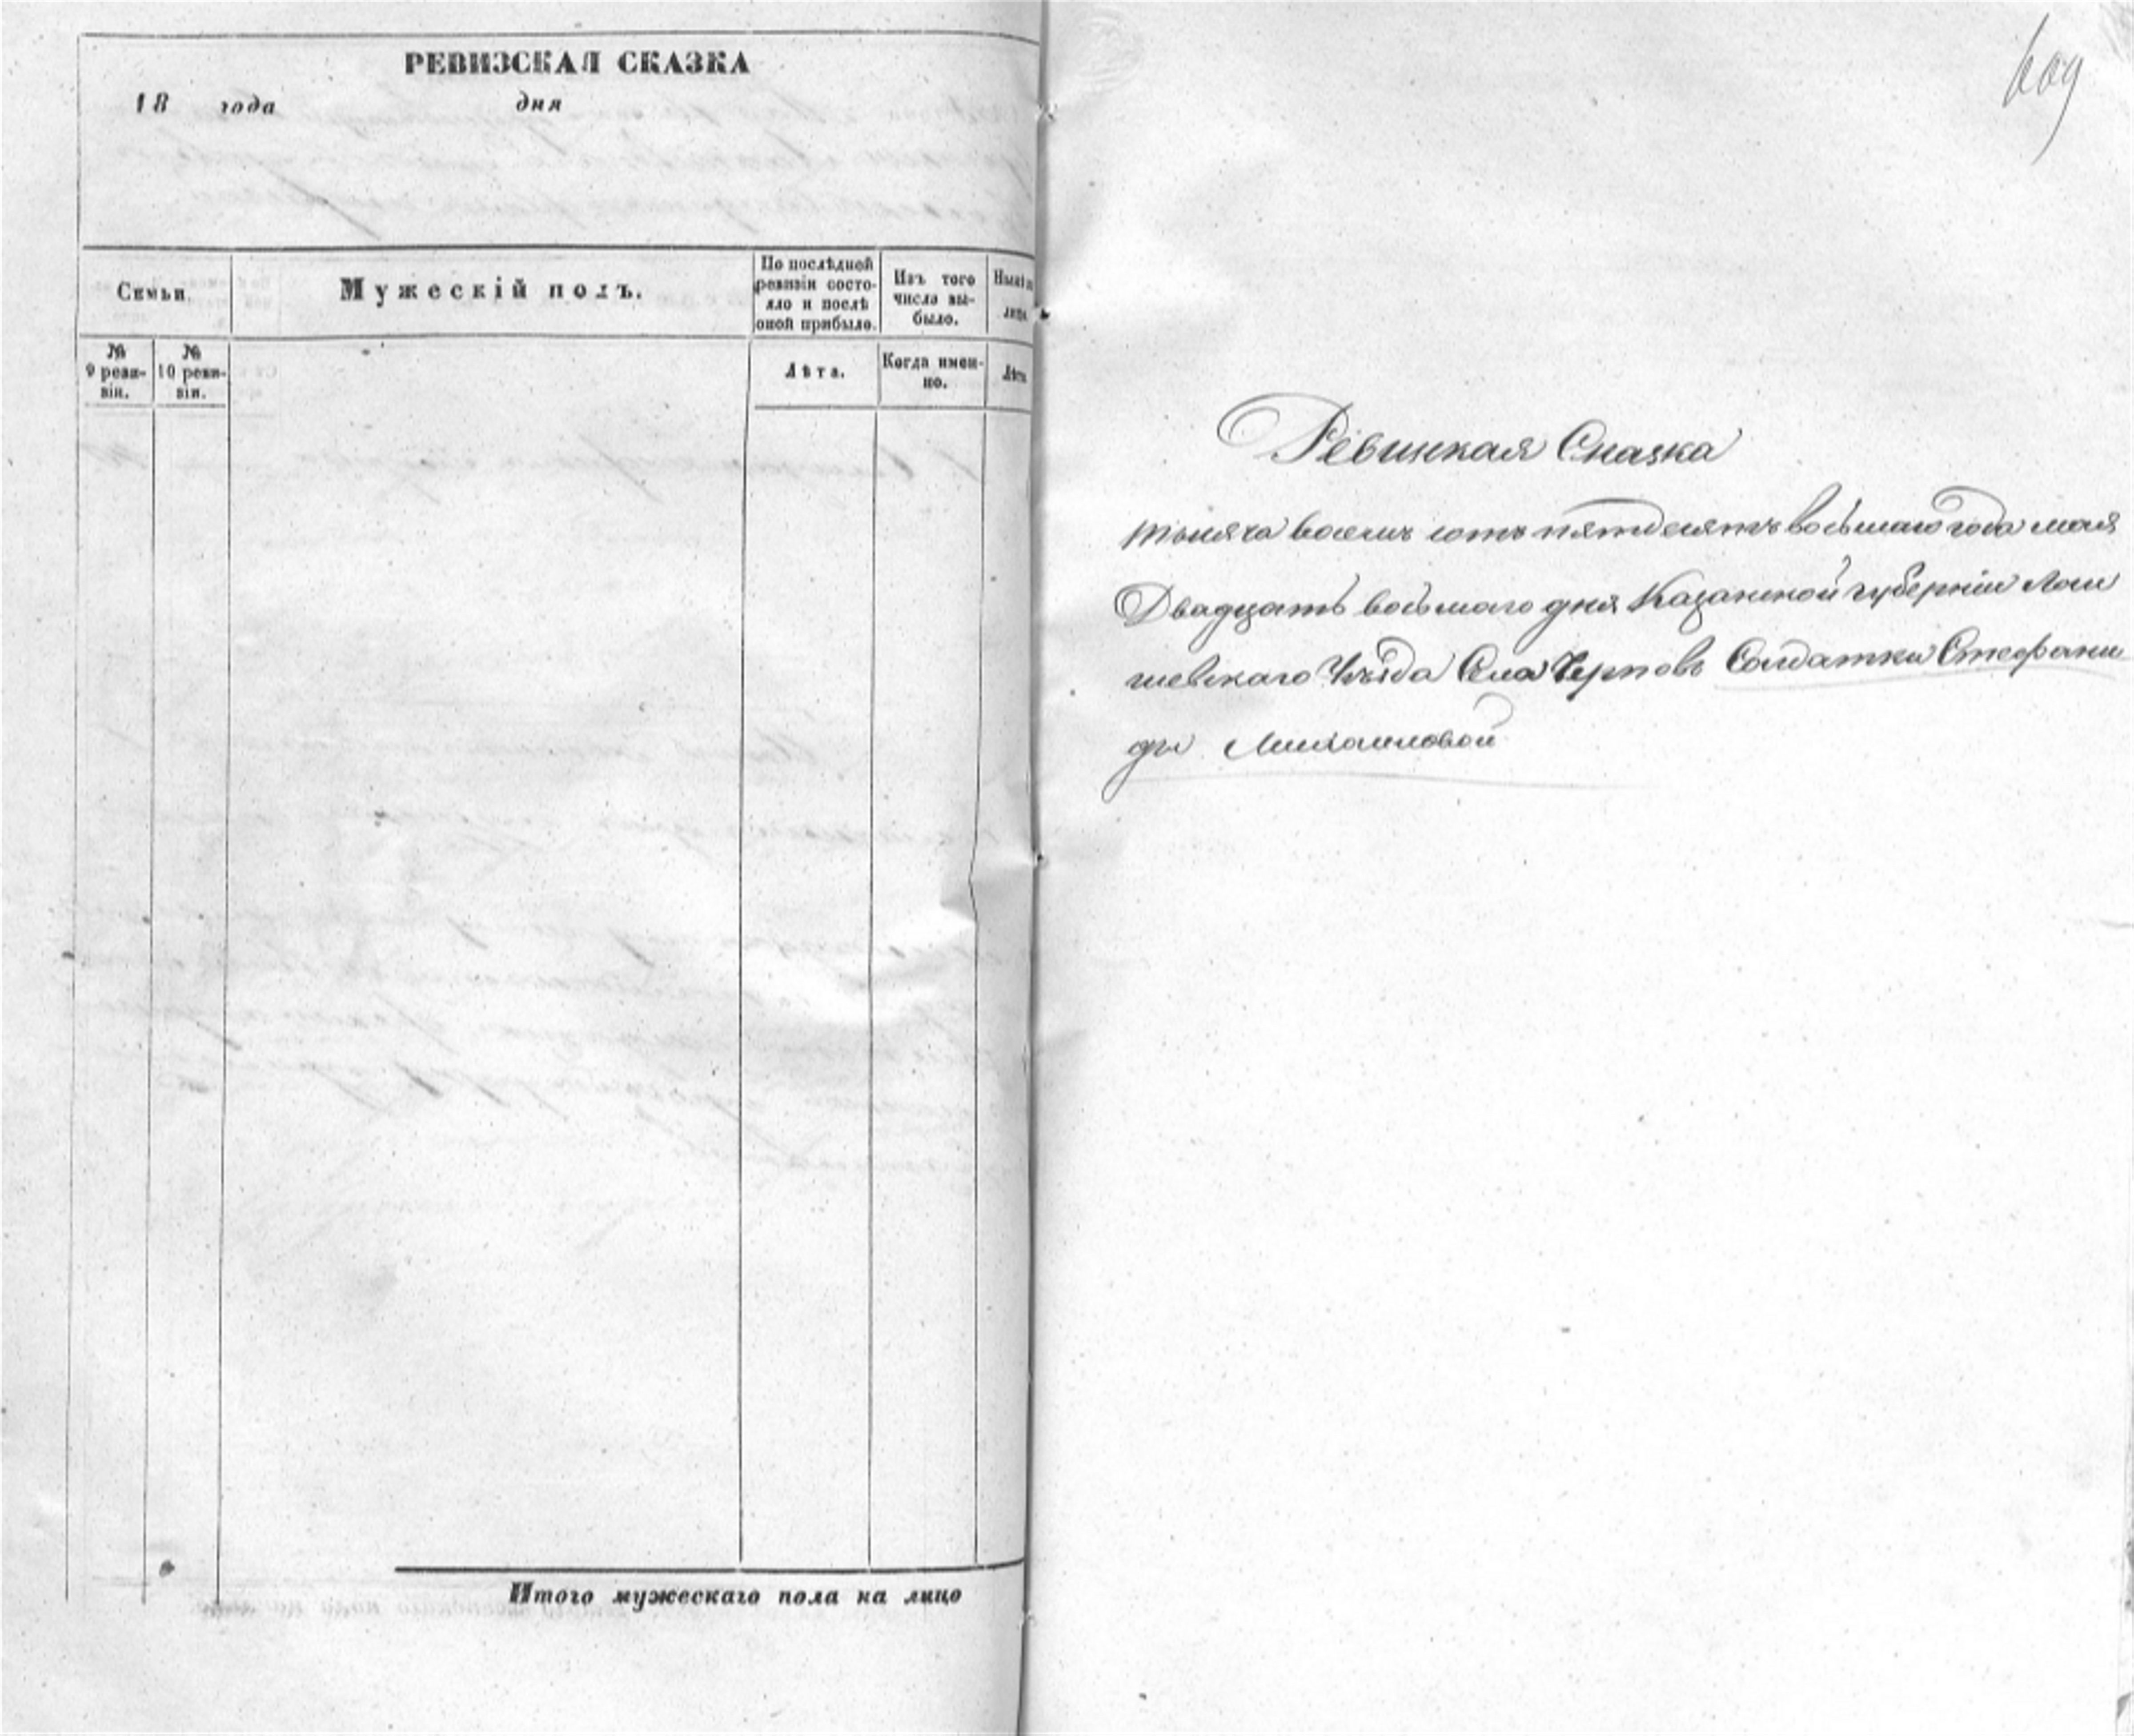 РЕВИЗСКАЯ СКАЗКА
18 года дня
Семьи.
Мужескій полъ.
По послѣдней ревизіи состояло и послѣ оной прибыло.
Изъ того числа выбыло.
№ 9 ревизіи.
№ 10 ревизіи.
Лѣта.
Когда именно.
Лѣта
Итого мужескаго пола на лицо
609
Ревизкая Сказка
тысяча восемь сотъ пятдесятъ восьмаго года мая
Двадцать восьмаго дня Казанской губерніи Лаи
шевскаго Уѣзда Села Солдатки Стефани
ды Михаиловой